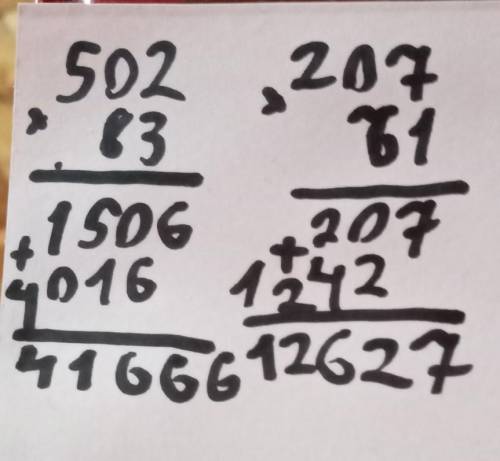 502
× 83
1506
+
4016
41666
207
× 61
207
+
1242
12627